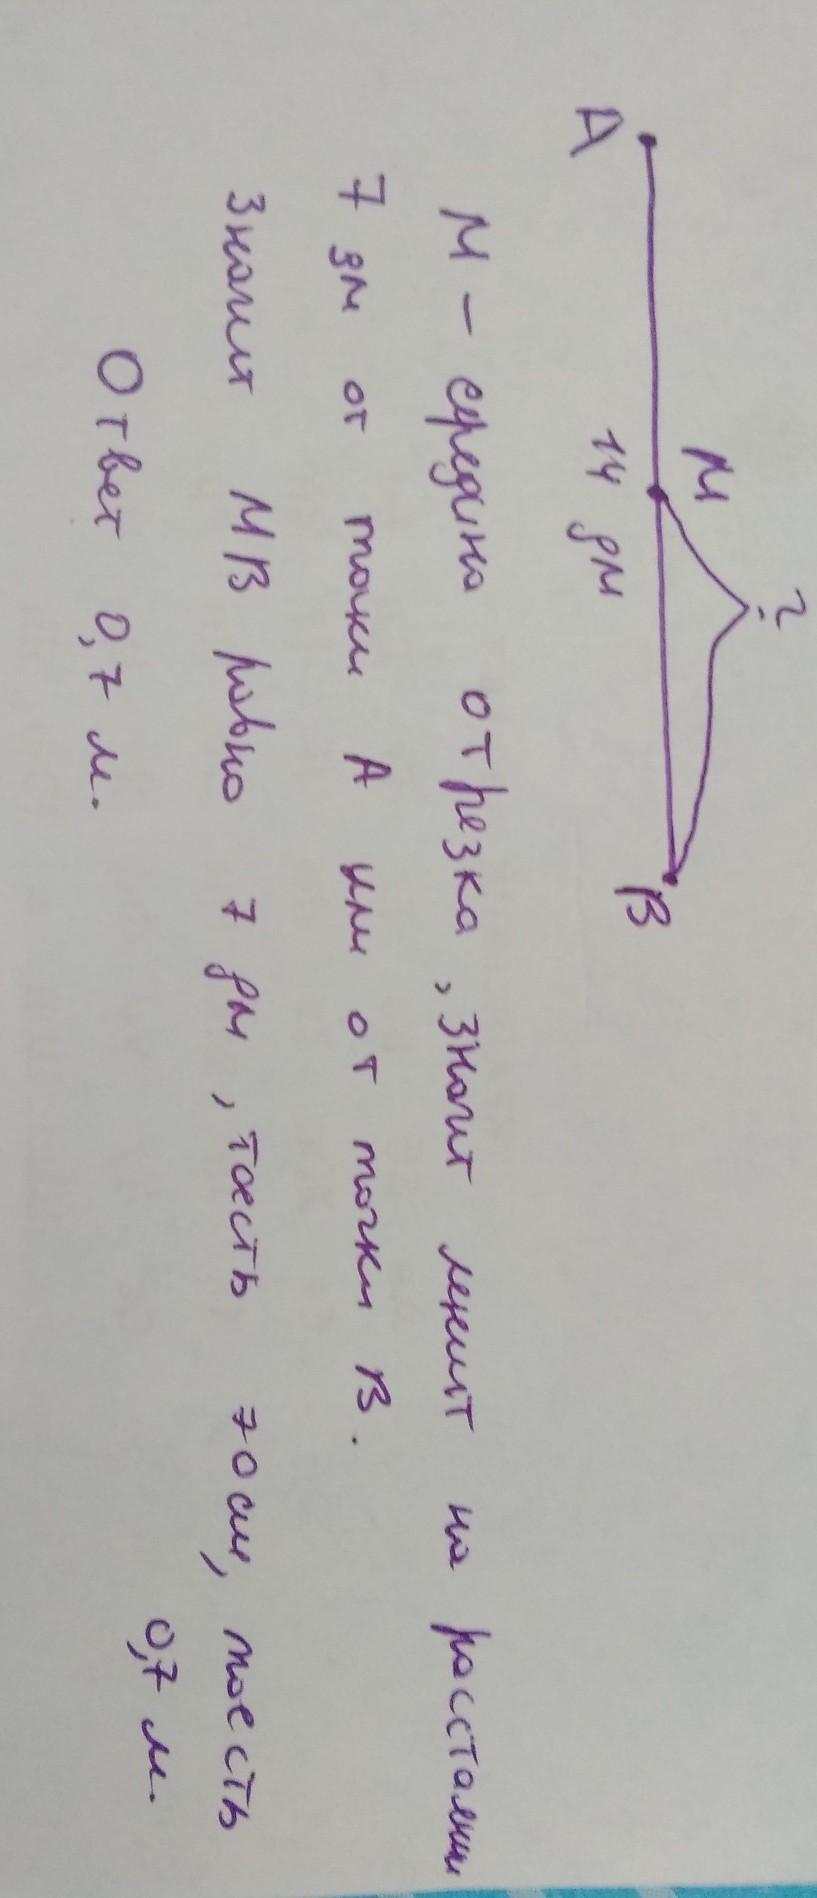 ?
М
А
14 дм
В
М - середина отрезка, значит лежит на расстоянии
7 дм от точки А или от точки В.
Значит МВ равно 7 дм, тоесть 70 см, тоесть
0,7 м.
Ответ 0,7 м.